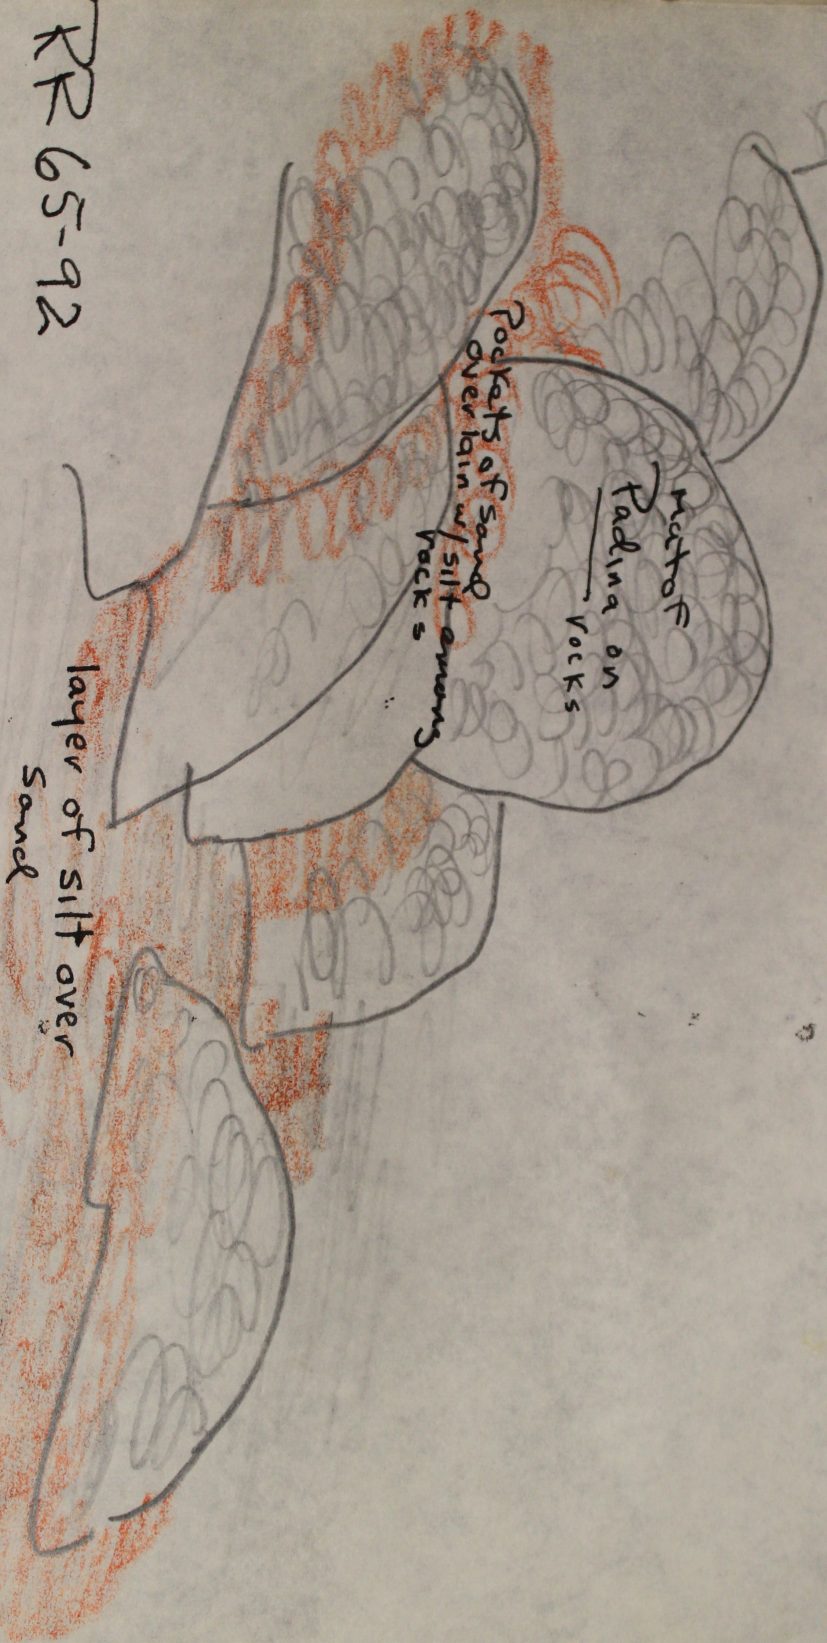 mat of
Padina on
rocks
Pockets of sand
overlain w/ silt among
rocks
layer of silt over
sand
RR 65-92